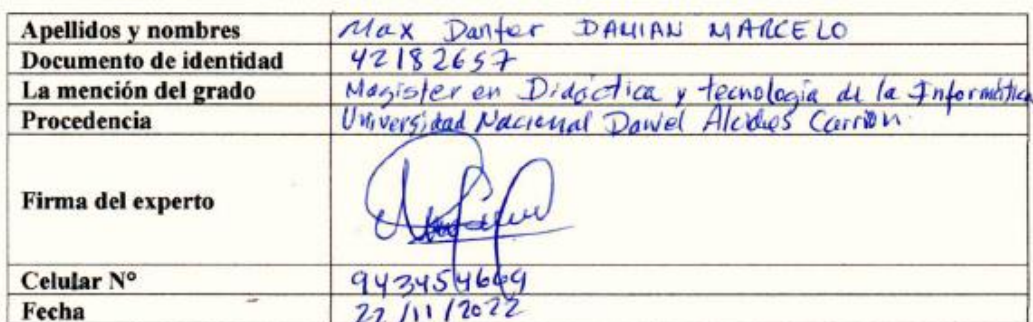 Apellidos y nombres Max Danfer DAMIAN MARCELO
Documento de identidad 42182657
La mención del grado Magister en Didáctica y tecnología de la Informática
Procedencia Universidad Nacional Daniel Alcides Carrión.
Firma del experto
Celular Nº 943454669
Fecha 22/11/2022